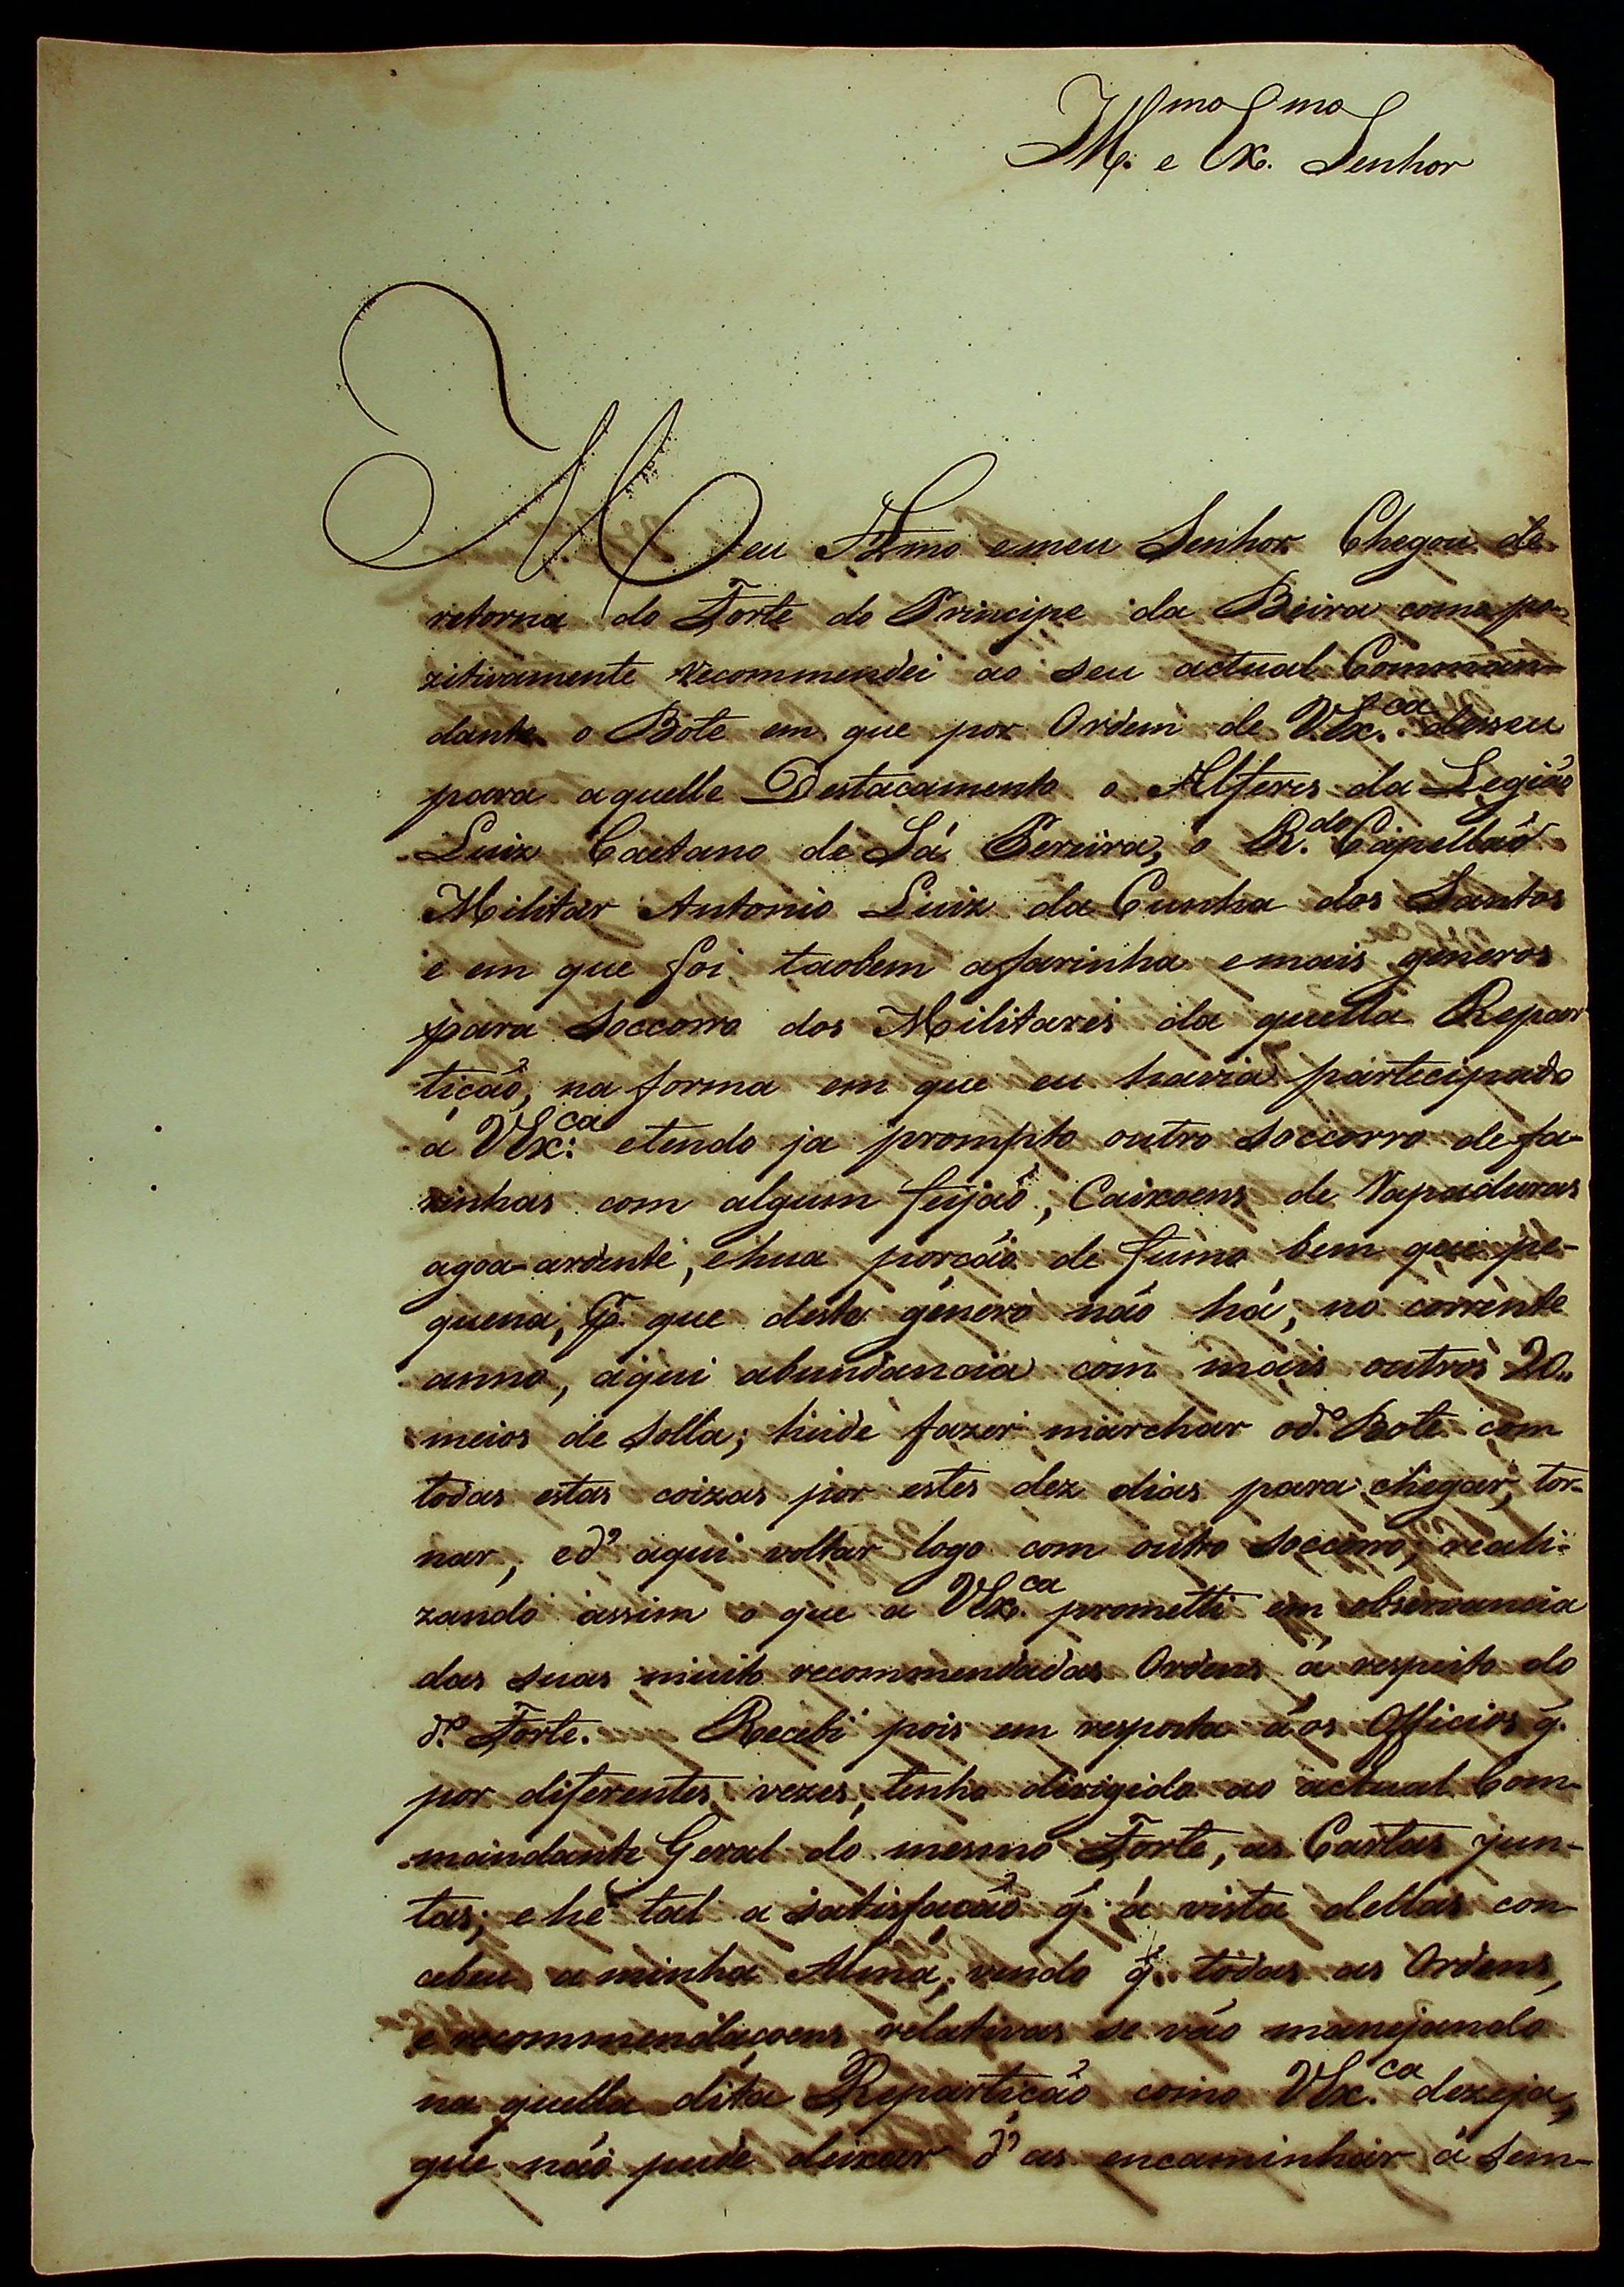 Ill.mo e Ex.mo Senhor
Meu Amo e meu Senhor Chegou de
retorna do Forte do Principe da Beira como po-
zitivamente recommendei ao seu actual Comman-
dante o Bote em que por Ordem de VEx.ca desceu
para aquelle Destacamento o Alferes da Legiaõ
Luiz Caetano de Sá Pereira, o R.do Capellaõ
Militar Antonio Luiz da Cunha dos Santos
e em que foi taobem afarinha emais generos
para Soccorro dos Militares da quella Repar
ticaõ, na forma em que eu havia participado
á VEx.ca etendo ja prompto outro Soccorro de fa-
rinhas com algum feijaõ, Caixoens de Rapaduras
agoa-ardente, ehua porcaõ de fumo bem que pe-
quena, p.r que deste género naõ há, no corrente
anno, aqui abundancia com mais outros 20,,
meios de Solla; hiide fazer marchar o d.o Bote com
todas estas coizas por estes dez dias para chegar, tor-
nar, e d' aqui voltar logo com outro Soccorro, reali-
zando assim o que a VEx.ca prometti em observancia
das suas muito recommendadas Ordens á respeito do
d.o Forte. Recebi pois em resposta áos Officios q.
por diferentes vezes, tenho dirigido ao actual Com-
mandante Geral do mesmo Forte, as Cartas jun-
tas; e hé tal a satisfacaõ q. á vista dellas con-
cebeu a minha Alma, vendo q. todas as Ordens,
e recommendacoens relativas se vaõ manejando
na quella dita Reparticaõ como VEx.ca dezeja,
que naõ pude deixar d' as encaminhar á Sem-